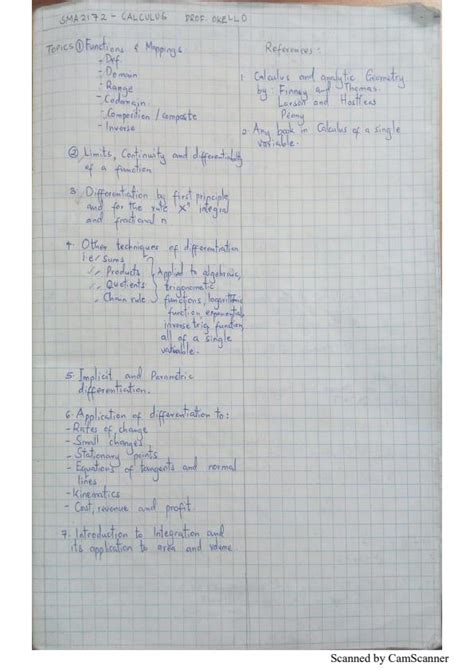 SMA2172 - CALCULUS PROF. OKELLO
TOPICS ① Functions & Mappings
- Def
- Domain
- Range
- Codomain
- Composition / composite
- Inverse
② Limits, Continuity and differentiability
of a function
3. Differentiation by first principle
and for the rule xⁿ integral
and fractional n
4. Other techniques of differentiation
i.e/ Sums
" Products
" Quotients
" Chain rule
Applied to algebraic,
trigonometric
functions, logarithmic
function, exponential
inverse trig function
all of a single
variable.
5. Implicit and Parametric
differentiation.
6. Application of differentiation to:
- Rates of change
- Small changes
- Stationary points
- Equations of tangents and normal
lines
- Kinematics
- Cost, revenue and profit.
7. Introduction to Integration and
its application to area and volume.
References:
1. Calculus and analytic Geometry
by: Finney and Thomas
Larson and
Penny
2. Any book in Calculus of a single
variable.
Scanned by CamScanner